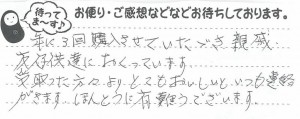 待ってま〜す♪
お便り・ご感想などなどお待ちしております。
年に3回購入させていただき親戚
友人子供達におくっています
受取った方々より、とてもおいしいと、いつも連絡
がきます。ほんとうに有難うございます。